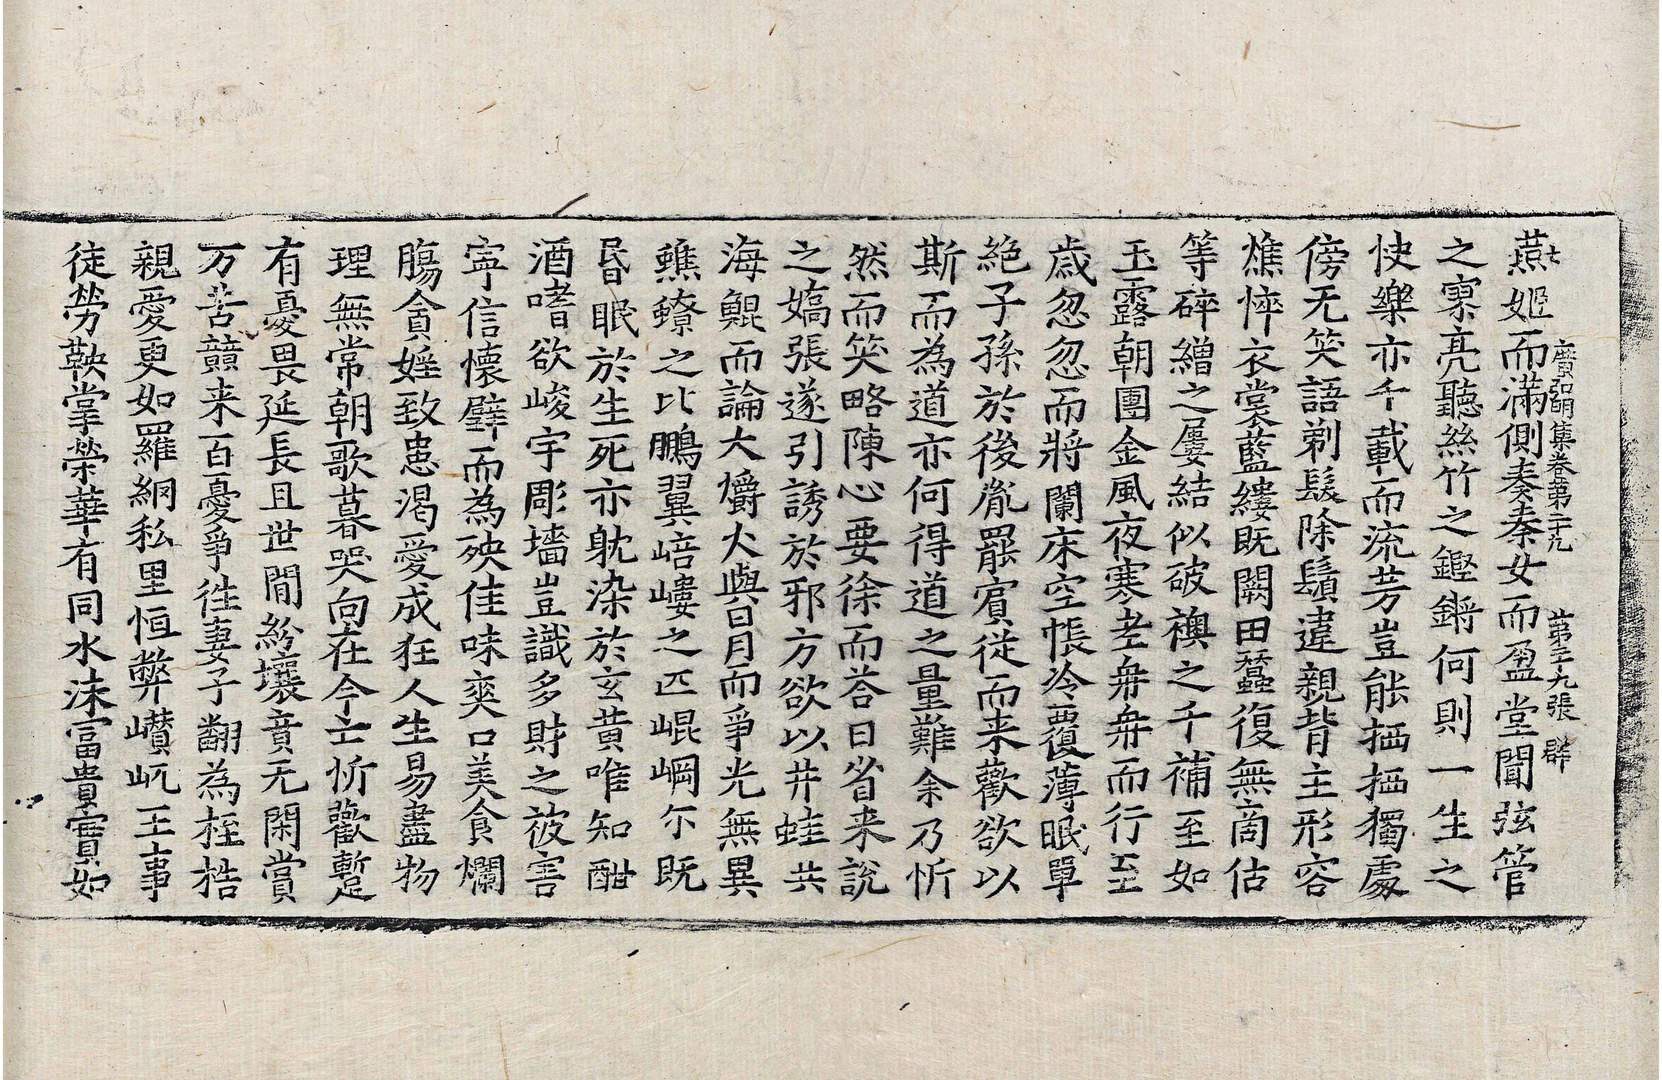 廣弘明集卷第二十九　第三十九張　群
燕姬而滿側奏秦女而盈堂聞弦管
之寥亮聽絲竹之鏗鏘何則一生之
快樂亦千載而流芳豈能栖栖獨處
傍无笑語剃髮除鬚違親背主形容
燋悴衣裳藍縷既闕田蠶復無商估
等碎繒之屢結似破襖之千補至如
玉露朝團金風夜寒老冉冉而行至
歲忽忽而將闌床空帳冷覆薄眠單
絕子孫於後胤罷賓從而来歡欲以
斯而為道亦何得道之量難余乃忻
然而笑略陳心要徐而荅曰省来說
之嬌張遂引誘於邪方欲以井蛙共
海鯤而論大爝火與日月而爭光無異
鷦鷯之比鵬翼㟝嶁之匹崐崗尒既
昬眠於生死亦躭染於玄黄唯知酣
酒嗜欲峻宇彫墻豈識多財之被害
寕信懷璧而為殃佳味爽口美食爛
腸貪婬致患渴愛成狂人生易盡物
理無常朝歌暮哭向在今亡忻歡蹔
有憂畏延長且世間紛壤賁无閑賞
万苦競来百憂爭徃妻子翻為桎梏
親愛更如羅網私里恒弊巑岏王事
徒勞鞅掌榮華有同水沫富貴實如